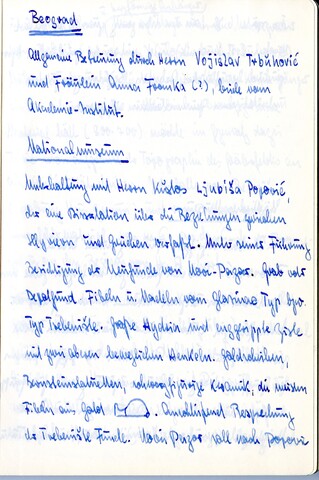 Beograd
Allgemeine Betreuung durch Herrn Vojislav Trbuhović
und Fräulein Anna Fronka (?), beide vom
Akademie-Institut.
Nationalmuseum
Unterhaltung mit Herrn Kustos Ljubiša Popović,
der eine Dissertation über die Beziehungen zwischen
Illyrien und Griechen verfasst. Unter seiner Führung
Besichtigung der Neufunde von Novi-Pazar. Grab oder
Depotfund. Fibeln u. Nadeln vom Glasinac Typ bzw.
Typ Trebenište. Große Hydria und enggerippte Ziste
mit zwei oberen beweglichen Henkeln. Goldscheiben,
Bernsteinstatuetten, schwarzfigurige Keramik, die meisten
Fibeln aus Gold. Anschließend Besprechung
der Trebenište Funde. Novi Pazar soll nach Popović